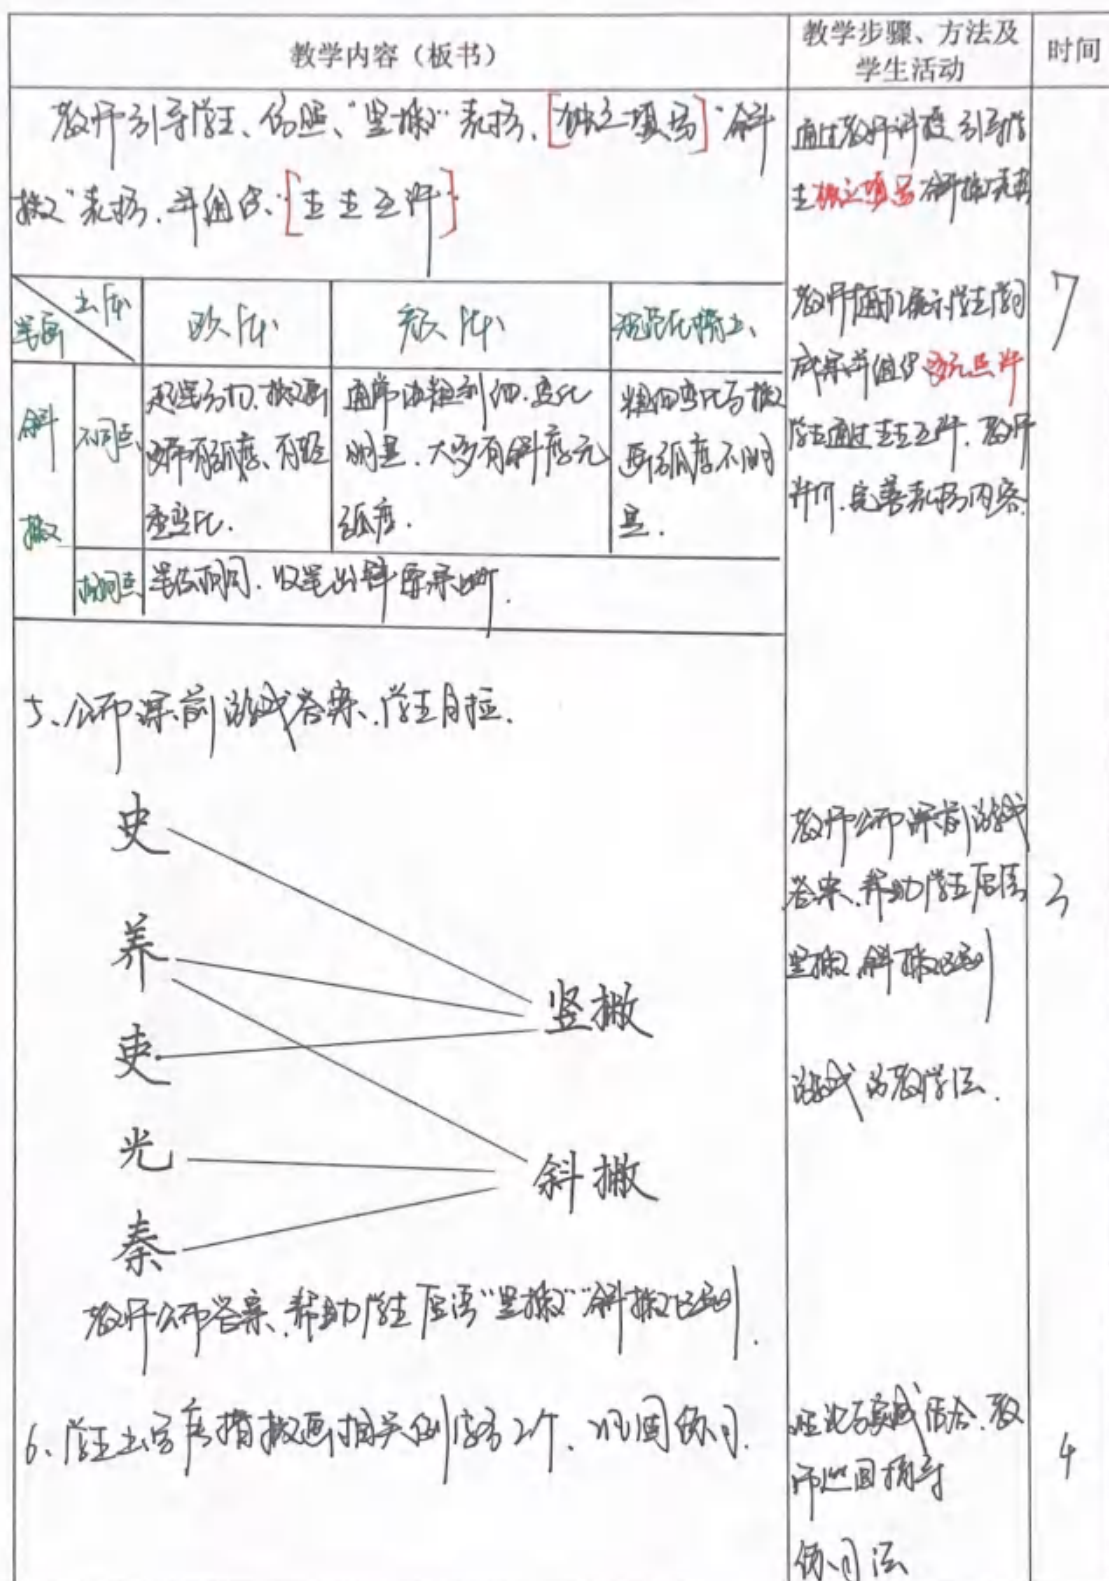 教学内容（板书）
教学步骤、方法及
学生活动
时间
教师引导学生、仿照、“竖撇”表格、[独立填写]“斜
撇”表格，并组织：[生生互评]
通过教师讲授，引导学
生独立填写斜撇表格
笔画
书体
欧体
颜体
规范化楷书
斜撇
不同点
起笔方切、撇画
略带有弧度、有轻
重变化.
通常由粗到细.变化
明显.大多有斜度无
弧度.
粗细变化与撇
画弧度不明
显.
相同点
笔法相同.收笔出锋要求
教师随机展示学生学习
成果并组织多元点评
学生通过生生互评、教师
评价.完善表格内容.
7
5、公布课前游戏答案.学生自检.
史
养
吏
光
秦
竖撇
斜撇
教师公布答案、帮助学生厘清“竖撇”“斜撇”区别.
教师公布课前游戏
答案、帮助学生厘清
竖撇、斜撇区别
3
游戏 教学法.
6、学生书写与撇画相关例字各2个、巩固练习.
理论与实践结合.教
师巡回指导
练习法
4